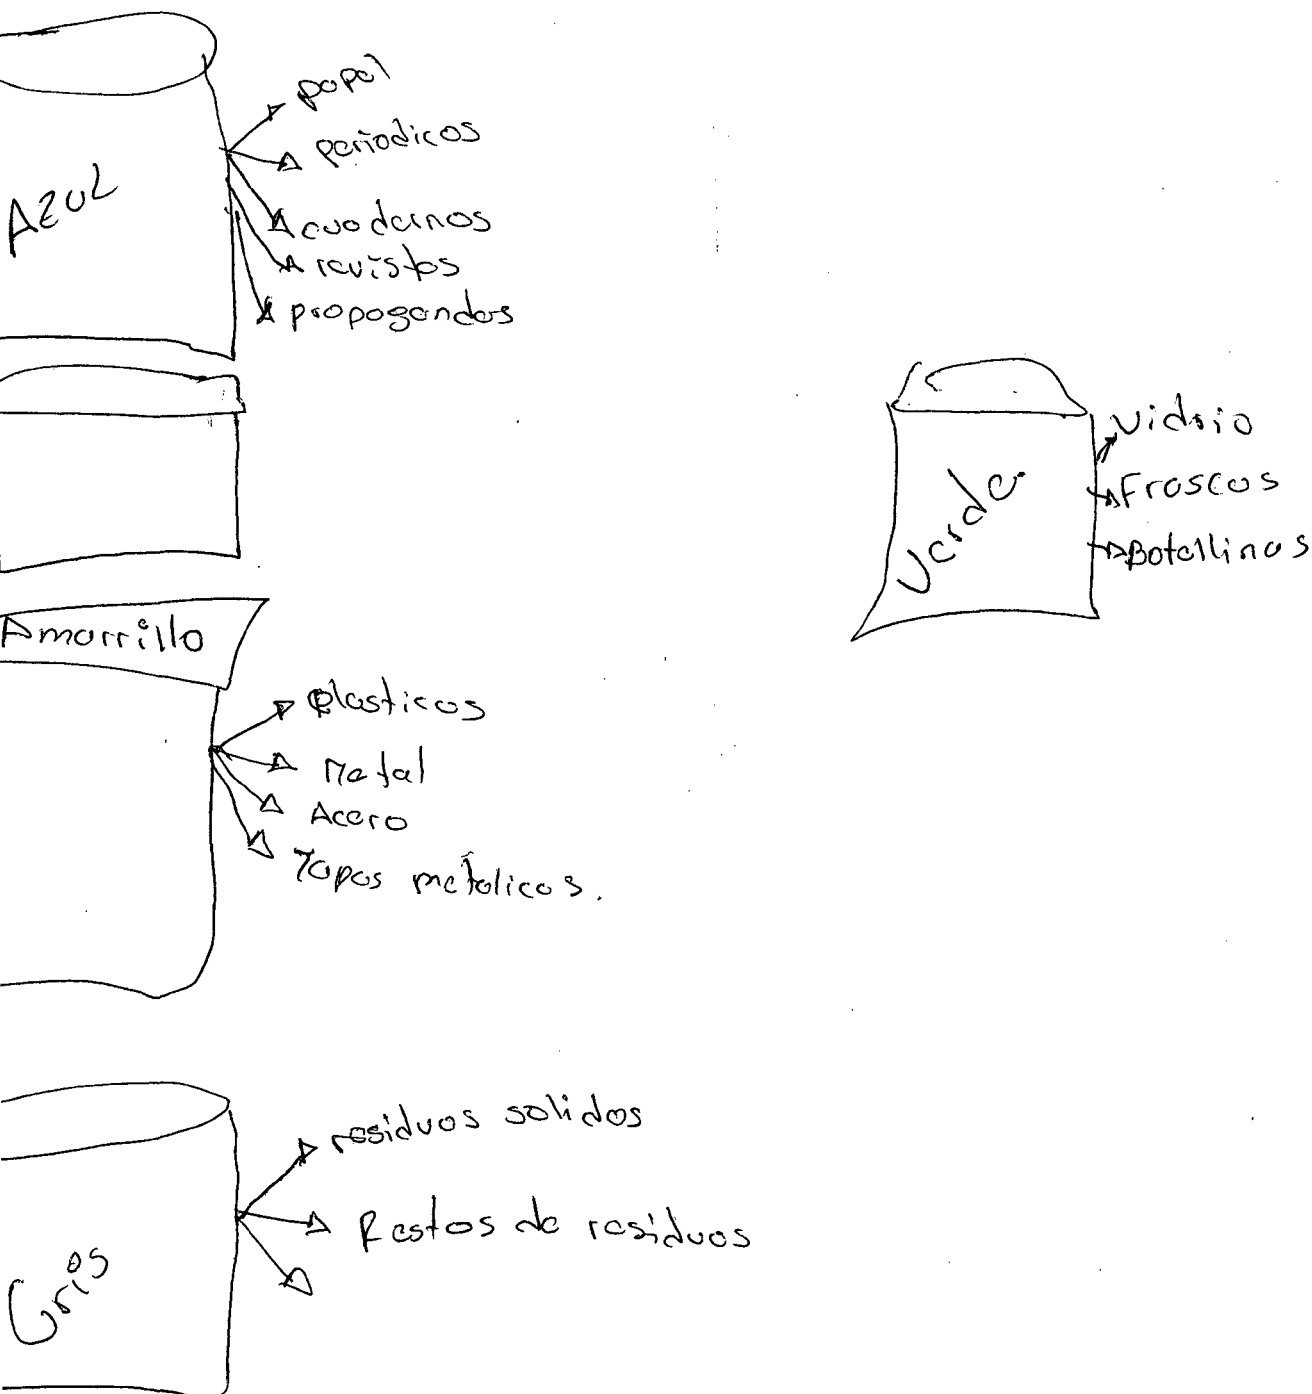 AZUL
papel
periodicos
cuadernos
revistas
propagandas
Verde
Vidrio
Frascos
Botellinas
Amarrillo
plasticos
Metal
Acero
Tapas metálicas.
Gris
residuos solidos
Restos de residuos